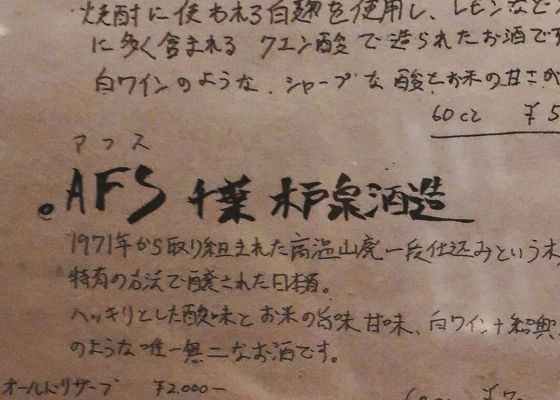 焼酎に使われる白麹を使用し、レモンなど
に多く含まれる クエン酸 で造られたお酒です
白ワインのような、シャープな 酸とお米の甘さが
60cc ¥5
アフス
。AFS 千葉 木戸泉酒造
1971年から取り組まれた高温山廃一段仕込みという木
特有の方法で醸された日本酒。
ハッキリとした酸味とお米の旨味 甘味、白ワイン+紹興
のような唯一無二なお酒です。
オールドリザーブ ¥2.000ー